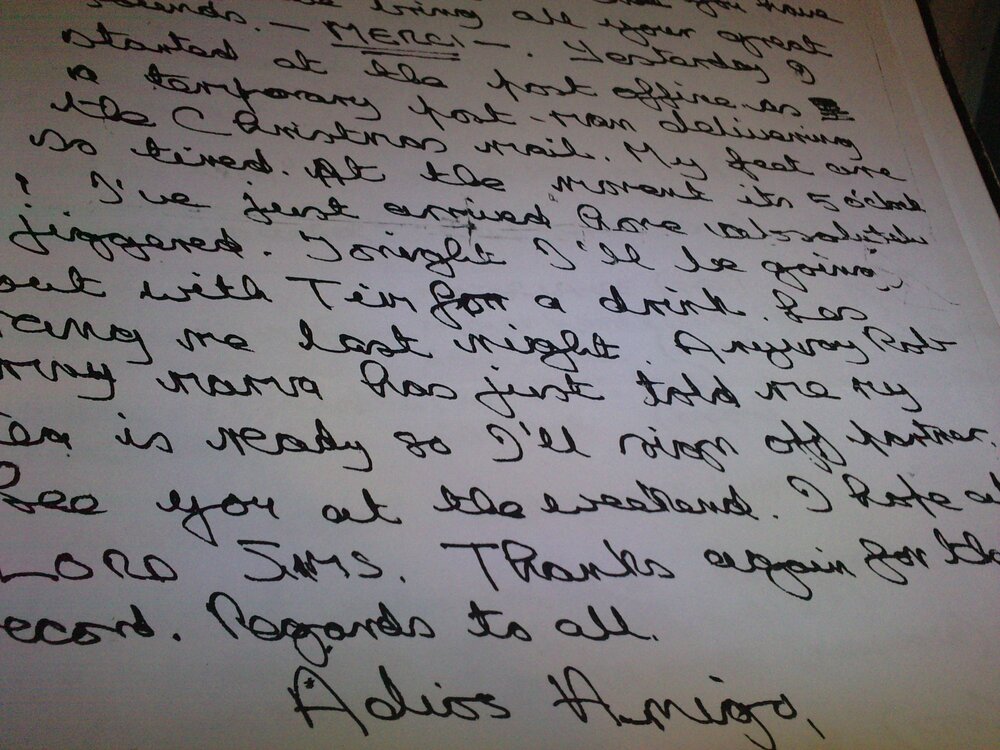 you have
sounds. — bring all your great
MERCI —. Yesterday I
started at the post office as
a temporary post-man delivering
the Christmas mail. My feet are
so tired. At the moment its 5 o'clock
& I've just arrived home absolutely
jiggered. Tonight I'll be going
out with Tim for a drink. has
rang me last night. Anyway Rob
my mama has just told me my
tea is ready so I'll sign off partner.
See you at the weekend. I hope at
LORD SIMS. Thanks again for the
record. Regards to all.
Adios Amigo,